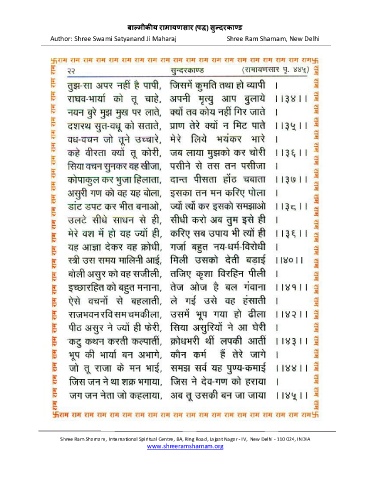 बाल्मीकीय रामायणसार (पद्य) सुन्दरकाण्ड
Author: Shree Swami Satyanand Ji Maharaj Shree Ram Sharnam, New Delhi
राम राम राम राम राम राम राम राम राम राम राम राम राम राम राम राम राम राम राम राम
२२ सुन्दरकाण्ड (रामायणसार पृ. ४४५)
तुझ-सा अपर नहीं है पापी, जिसमें कुमति तथा हो व्यापी ।
राघव-भार्या को तू चाहे, अपनी मृत्यु आप बुलाये ।।३४।।
नयन बुरे मुझ मुख पर लाते, क्यों तव कोय नहीं गिर जाते ।
दशरथ सुत-वधू को सताते, प्राण तेरे क्यों न भिट पाते ।।३५।।
वध-वचन जो तूने उच्चारे, मेरे लिये भयंकर भारे ।
कहे वीरता क्यों तू कोरी, जब लाया मुझको कर चोरी ।।३६।।
सिया वचन सुनकर वह खीजा, पसीने से तस तन पसीजा ।
कोपाकुल कर भुजा हिलाता, दान्त पीसता होंठ चबाता ।।३७।।
असुरी गण को वह यह बोला, इसका तन मन करिए पोला ।
डांट डपट कर भीत बनाओ, ज्यों त्यों कर इसको समझाओ ।।३८।।
उलटे सीधे साधन से ही, सीधी करो अब तुम इसे ही ।
मेरे वश में हो यह ज्यों ही, करिए सब उपाय भी त्यों ही ।।३६।।
यह आज्ञा देकर वह क्रोधी, गर्जा बहुत नय-धर्म-विरोधी ।
स्त्री उस समय मालिनी आई, मिली उसको देती बडाई ।।४०।।
बोली असुर को वह सजीली, तजिए कृशा विरहिन पीली ।
इच्छारहित को बहुत मनाना, तेज ओज है बल गंवाना ।।४१।।
ऐसे वचनों से बहलाती, ले गई उसे वह हंसाती ।
राजभवन रवि सम चमकीला, उसमें भूप गया हो ढीला ।।४२।।
पीठ असुर ने ज्यों ही फेरी, सिया असुरियों ने आ घेरी ।
कटु कथन करती कल्पातीं, क्रोधभरी थीं लपकी आतीं ।।४३।।
भूप की भार्या बन अभागे, कौन कर्म हैं तेरे जागे ।
जो तू राजा के मन भाई, समझ सर्व यह पुण्य-कमाई ।।४४।।
जिस जन ने था शक्र भगाया, जिस ने देव-गण को हराया ।
जग जन नेता जो कहलाया, अब तू उसकी बन जा जाया ।।४५।।
राम राम राम राम राम राम राम राम राम राम राम राम राम राम राम राम राम राम राम राम
Shree Ram Sharnam, International Spiritual Centre, 8A, Ring Road, Lajpat Nagar - IV, New Delhi - 110 024, INDIA
www.shreeramsharnam.org